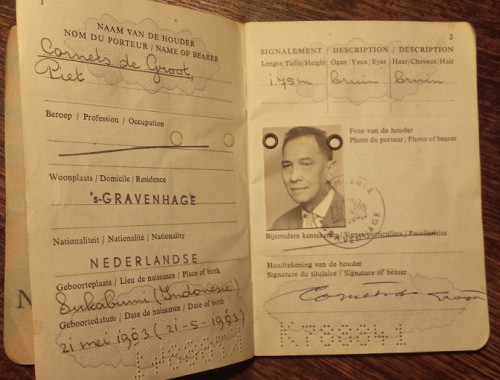 1
NAAM VAN DE HOUDER
NOM DU PORTEUR / NAME OF BEARER
Cornets de Groot,
Piet
Beroep / Profession / Occupation
Woonplaats / Domicile / Residence
's-GRAVENHAGE
Nationaliteit / Nationalité / Nationality
NEDERLANDSE
Geboorteplaats / Lieu de naissance / Place of birth
Sukabumi (Indonesië)
Geboortedatum / Date de naissance / Date of birth
21 mei 1903 (21-5-1903)
2
SIGNALEMENT / DESCRIPTION / DESCRIPTION
Lengte/Taille/Height Ogen/Yeux/Eyes Haar/Cheveux/Hair
1.75m bruin bruin
Foto van de houder
Photo du porteur / Photo of bearer
Bijzondere kentekenen / Signes particuliers / Peculiarities
Handtekening van de houder
Signature du titulaire / Signature of bearer
Cornets de Groot
K798041